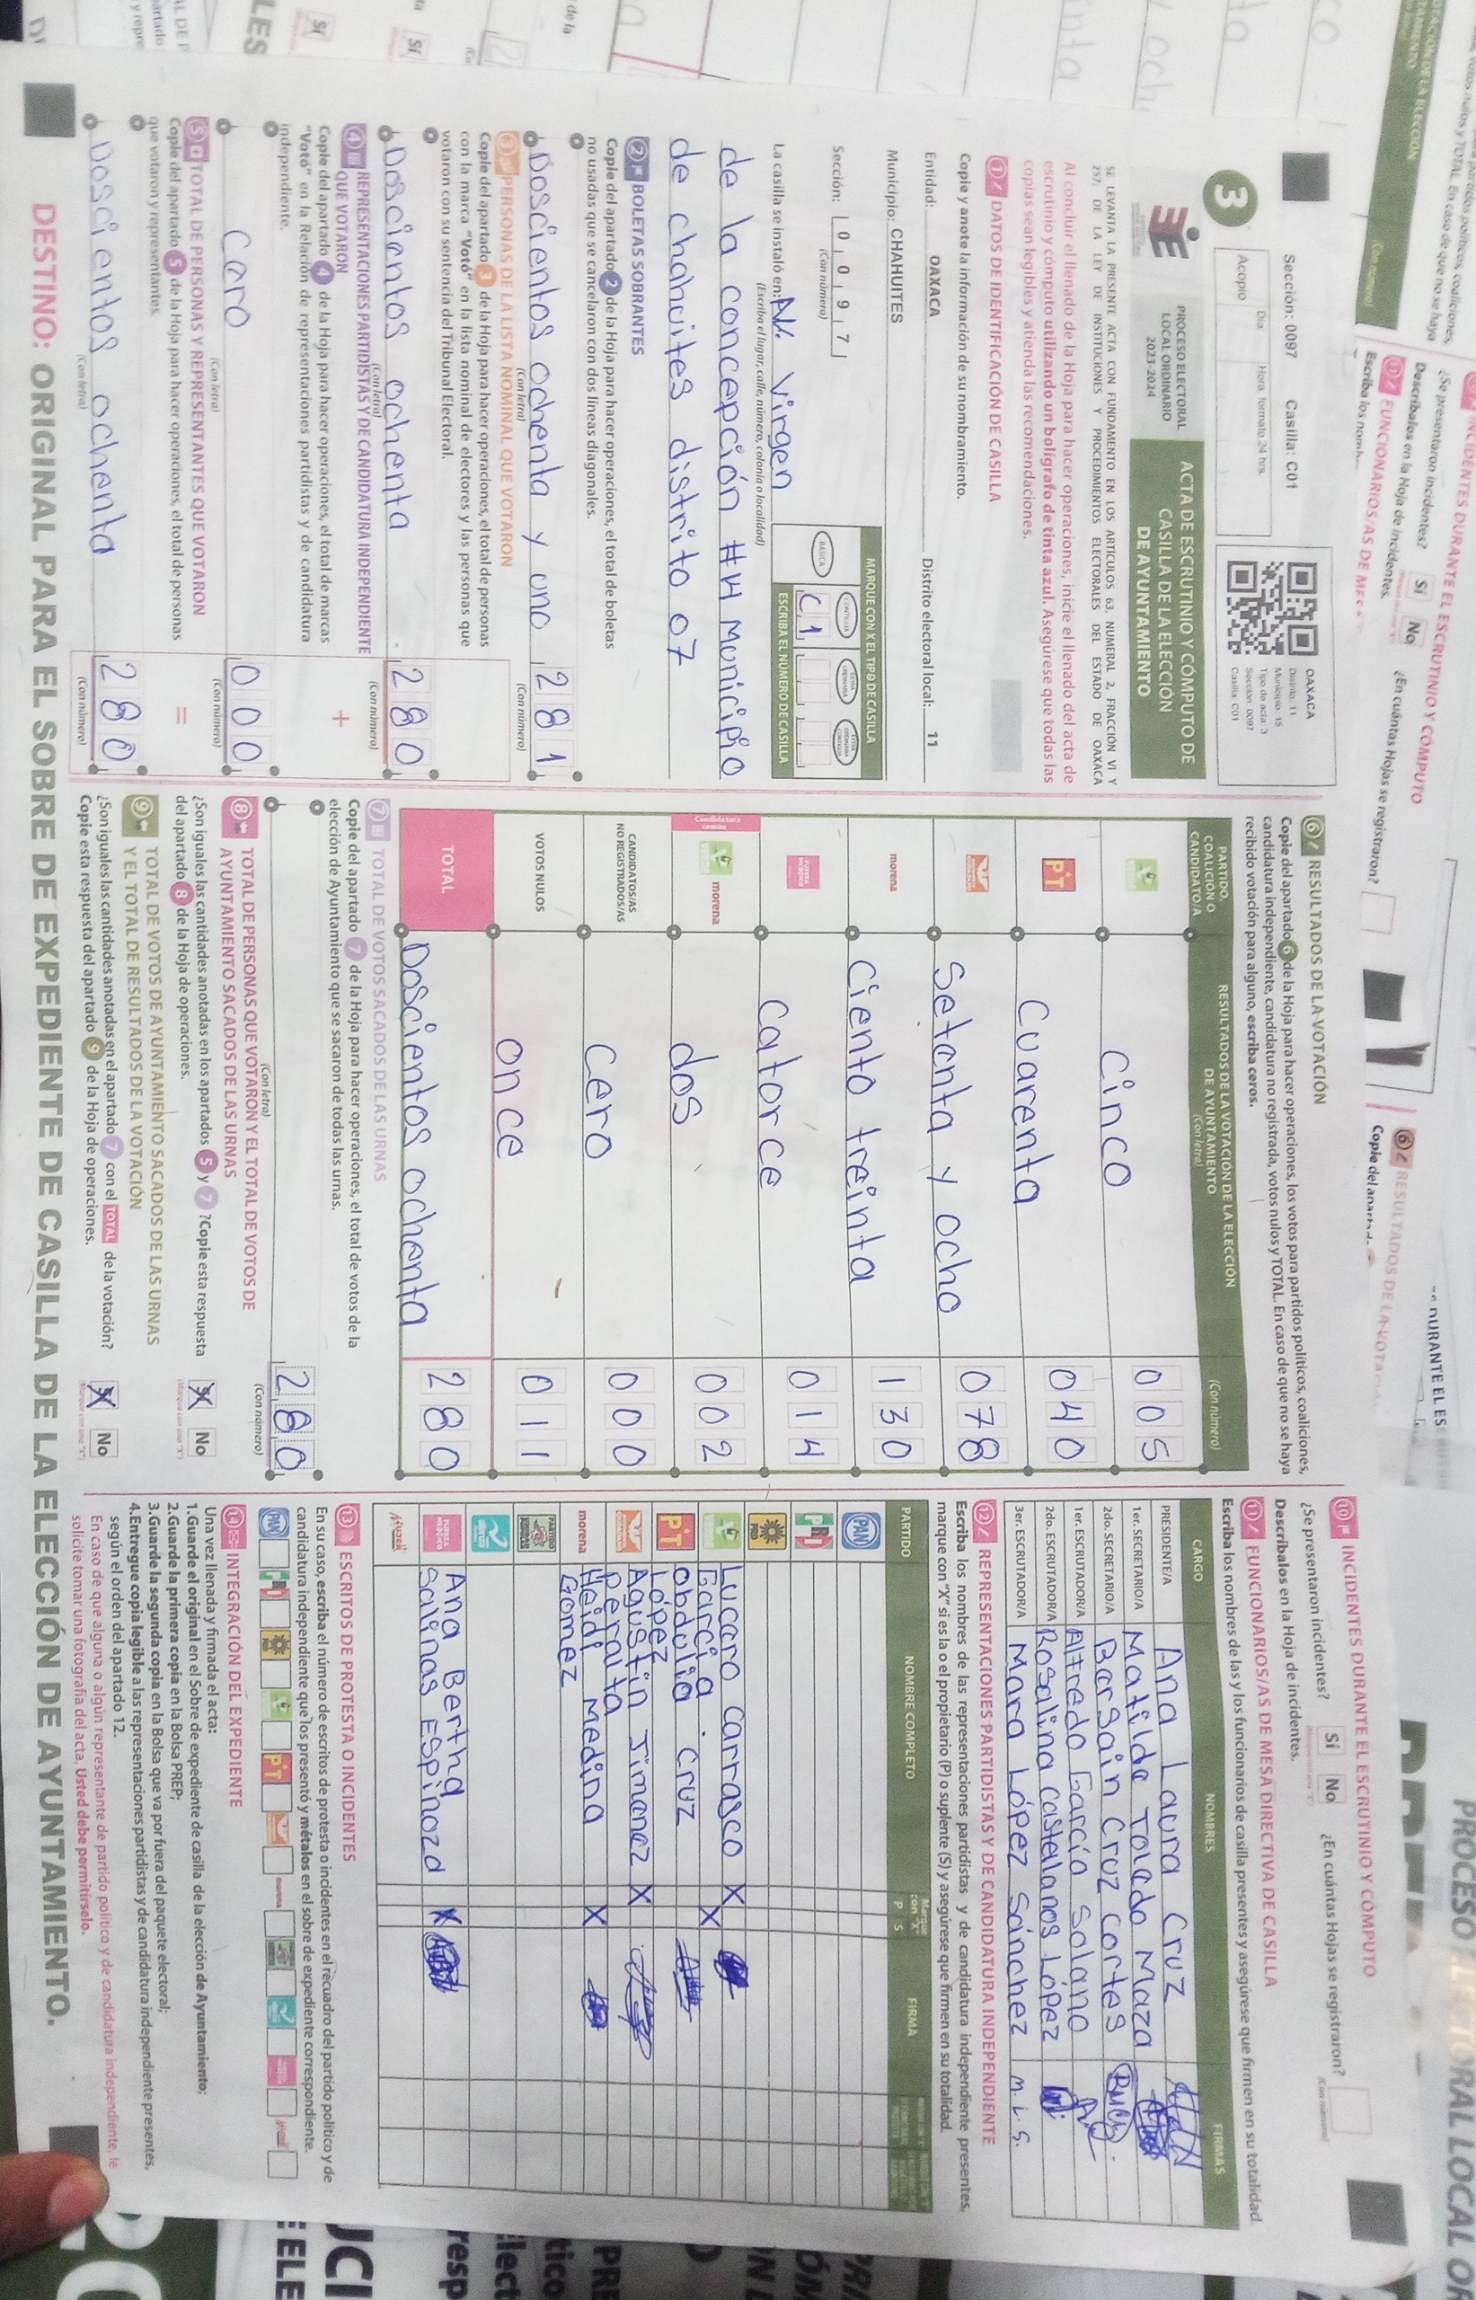 Sección: 0097 Casilla: C01
Día Hora formato 24 hrs.
Acopio
3
PROCESO ELECTORAL
LOCAL ORDINARIO
2023-2024
ACTA DE ESCRUTINIO Y CÓMPUTO DE
CASILLA DE LA ELECCIÓN
DE AYUNTAMIENTO
OAXACA
Distrito: 11
Municipio: 15
Tipo de acta: 3
Sección: 0097
Casilla: C01
SE LEVANTA LA PRESENTE ACTA CON FUNDAMENTO EN LOS ARTÍCULOS 63, NUMERAL 2, FRACCIÓN VI Y
257, DE LA LEY DE INSTITUCIONES Y PROCEDIMIENTOS ELECTORALES DEL ESTADO DE OAXACA
Al concluir el llenado de la Hoja para hacer operaciones, inicie el llenado del acta de
escrutinio y cómputo utilizando un bolígrafo de tinta azul. Asegúrese que todas las
copias sean legibles y atienda las recomendaciones.
1 DATOS DE IDENTIFICACIÓN DE CASILLA
Copie y anote la información de su nombramiento.
Entidad: OAXACA Distrito electoral local: 11
Municipio: CHAHUITES
Sección: 0 0 9 7
(Con número)
MARQUE CON X EL TIPO DE CASILLA
BÁSICA
C 1
ESCRIBA EL NÚMERO DE CASILLA
La casilla se instaló en: AV. Virgen
(Escriba el lugar, calle, número, colonia o localidad)
de la concepción #4 Municipio
de chahuites distrito 07
2 BOLETAS SOBRANTES
Copie del apartado 2 de la Hoja para hacer operaciones, el total de boletas
no usadas que se cancelaron con dos líneas diagonales.
Doscientos ochenta y uno 281
(Con letra) (Con número)
3 PERSONAS DE LA LISTA NOMINAL QUE VOTARON
Copie del apartado 3 de la Hoja para hacer operaciones, el total de personas
con la marca "Votó" en la lista nominal de electores y las personas que
votaron con su sentencia del Tribunal Electoral.
Doscientos ochenta 280
(Con letra) (Con número)
4 REPRESENTACIONES PARTIDISTAS Y DE CANDIDATURA INDEPENDIENTE
QUE VOTARON
Copie del apartado 4 de la Hoja para hacer operaciones, el total de marcas
"Votó" en la Relación de representaciones partidistas y de candidatura
independiente.
+
Cero 000
(Con letra) (Con número)
5 TOTAL DE PERSONAS Y REPRESENTANTES QUE VOTARON
Copie del apartado 5 de la Hoja para hacer operaciones, el total de personas
que votaron y representantes.
=
Doscientos ochenta 280
(Con letra) (Con número)
6 RESULTADOS DE LA VOTACIÓN
Copie del apartado 6 de la Hoja para hacer operaciones, los votos para partidos políticos, coaliciones,
candidatura independiente, candidatura no registrada, votos nulos y TOTAL. En caso de que no se haya
recibido votación para alguno, escriba ceros.
PARTIDO, COALICIÓN O CANDIDATO/A
RESULTADOS DE LA VOTACIÓN DE LA ELECCIÓN DE AYUNTAMIENTO
(Con letra) (Con número)
cinco 005
PT Cuarenta 040
Setenta y ocho 078
morena Ciento treinta 130
catorce 014
Candidatura común morena dos 002
CANDIDATOS/AS NO REGISTRADOS/AS Cero 000
VOTOS NULOS once 011
TOTAL Doscientos ochenta 280
7 TOTAL DE VOTOS SACADOS DE LAS URNAS
Copie del apartado 7 de la Hoja para hacer operaciones, el total de votos de la
elección de Ayuntamiento que se sacaron de todas las urnas.
280
(Con letra) (Con número)
8 TOTAL DE PERSONAS QUE VOTARON Y EL TOTAL DE VOTOS DE
AYUNTAMIENTO SACADOS DE LAS URNAS
¿Son iguales las cantidades anotadas en los apartados 5 y 7? Copie esta respuesta
del apartado 8 de la Hoja de operaciones.
Sí No
9 TOTAL DE VOTOS DE AYUNTAMIENTO SACADOS DE LAS URNAS
Y EL TOTAL DE RESULTADOS DE LA VOTACIÓN
¿Son iguales las cantidades anotadas en el apartado 7 con el TOTAL de la votación?
Copie esta respuesta del apartado 9 de la Hoja de operaciones.
Sí No
10 INCIDENTES DURANTE EL ESCRUTINIO Y CÓMPUTO
¿Se presentaron incidentes? Sí No ¿En cuántas Hojas se registraron?
Descríbalos en la Hoja de incidentes.
11 FUNCIONARIOS/AS DE MESA DIRECTIVA DE CASILLA
Escriba los nombres de las y los funcionarios de casilla presentes y asegúrese que firmen en su totalidad.
CARGO NOMBRES FIRMAS
PRESIDENTE/A Ana Laura Cruz
1er. SECRETARIO/A Matilde Toledo Maza
2do. SECRETARIO/A Barsain Cruz Cortes
1er. ESCRUTADOR/A Alfredo García Solano
2do. ESCRUTADOR/A Rosalina Castellanos López
3er. ESCRUTADOR/A Mara López Sánchez M. L. S.
12 REPRESENTACIONES PARTIDISTAS Y DE CANDIDATURA INDEPENDIENTE
Escriba los nombres de las representaciones partidistas y de candidatura independiente presentes,
marque con "X" si es la o el propietario (P) o suplente (S) y asegúrese que firmen en su totalidad.
PARTIDO NOMBRE COMPLETO P S FIRMA
PAN
PRI
PRD
Lucero Carrasco X
García.
PT Obdulia Cruz X
López
Agustin Jimenez X
Peralta
morena Heidi Medina X
Gomez
Ana Bertha
Salinas Espinoza X
13 ESCRITOS DE PROTESTA O INCIDENTES
En su caso, escriba el número de escritos de protesta o incidentes en el recuadro del partido político y de
candidatura independiente que los presentó y métalos en el sobre de expediente correspondiente.
14 INTEGRACIÓN DEL EXPEDIENTE
Una vez llenada y firmada el acta:
1.Guarde el original en el Sobre de expediente de casilla de la elección de Ayuntamiento;
2.Guarde la primera copia en la Bolsa PREP;
3.Guarde la segunda copia en la Bolsa que va por fuera del paquete electoral;
4.Entregue copia legible a las representaciones partidistas y de candidatura independiente presentes,
según el orden del apartado 12.
En caso de que alguna o algún representante de partido político y de candidatura independiente, le
solicite tomar una fotografía del acta, Usted debe permitírselo.
DESTINO: ORIGINAL PARA EL SOBRE DE EXPEDIENTE DE CASILLA DE LA ELECCIÓN DE AYUNTAMIENTO.